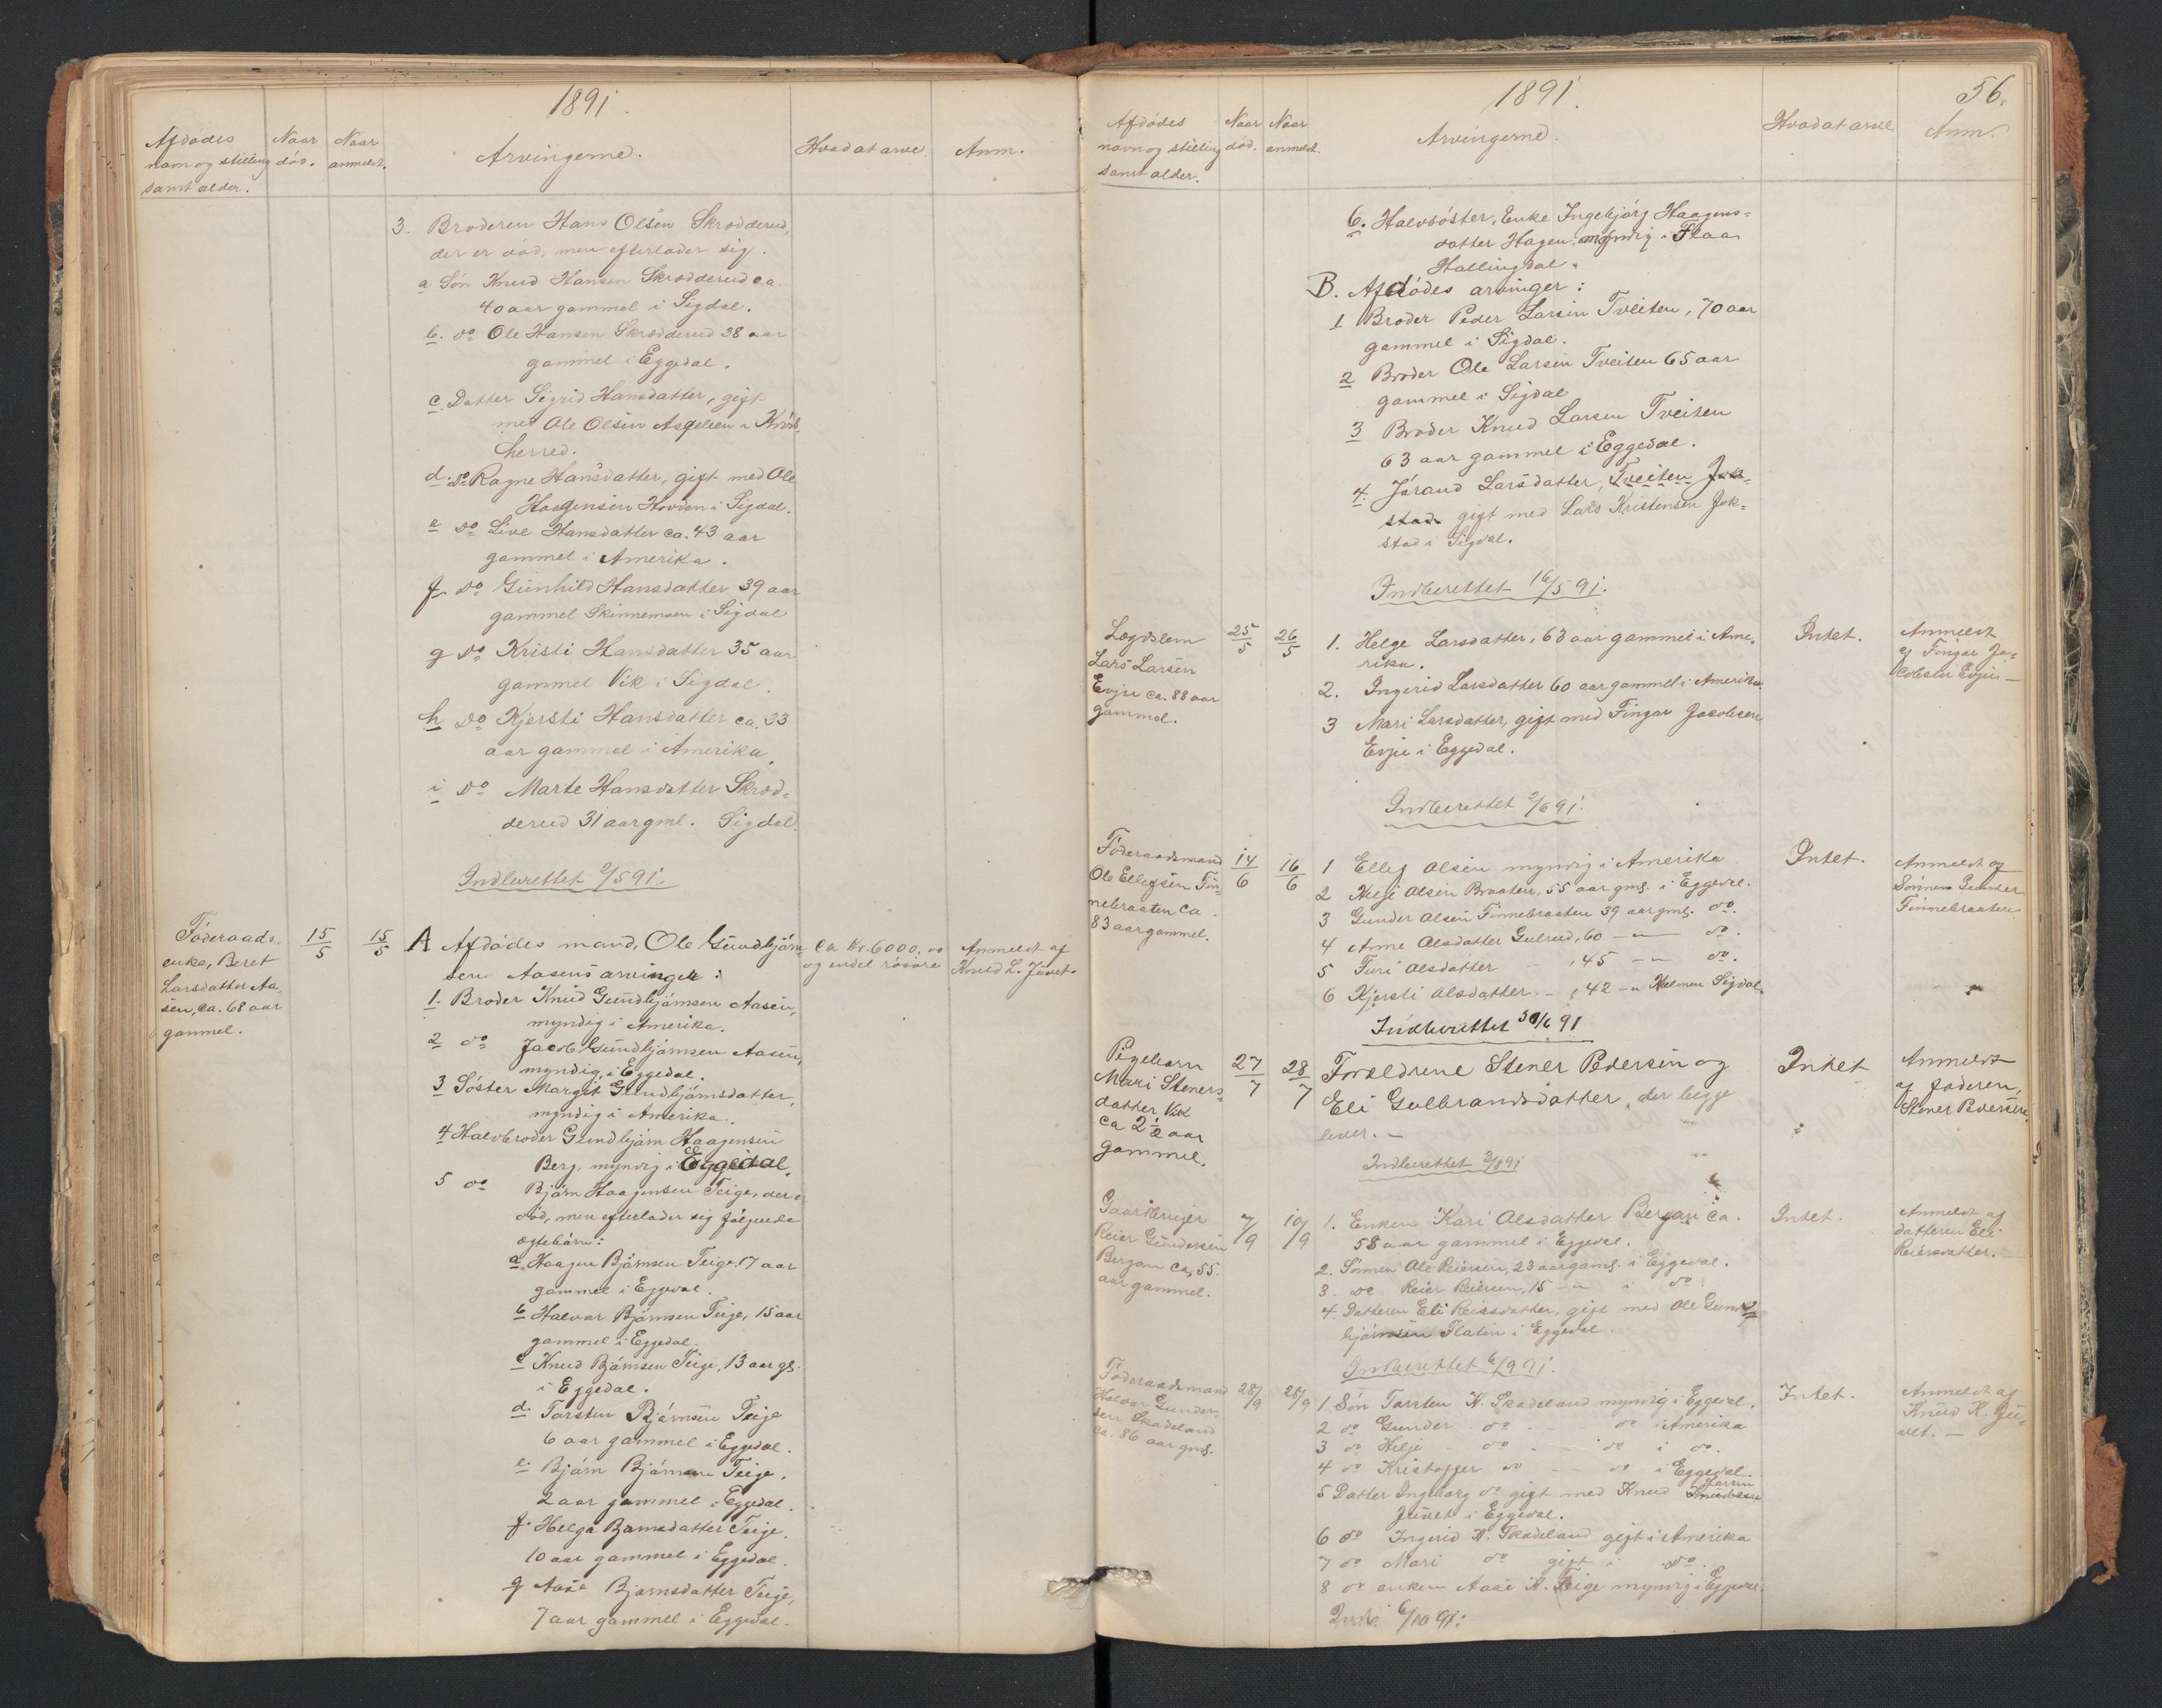 1891.
Afdødes
navn og stilling
samt alder.
Naar
død.
Naar
anmeldt.
Arvingerne.
Hvad at arve.
Anm.
3. Broderen Hans Olsen Skrodderud,
der er død, men efterlader sig.
a Søn Knud Hansen Skrodderud ca.
40 aar gammel i Sigdal.
b. do Ole Hansen Skrodderud 38 aar
gammel i Eggedal.
c. Datter Sigrid Hansdatter, gift
med Ole Olsen i Krøds-
herred.
d. do Ragne Hansdatter, gift med Ole
Haagensen Hovden i Sigdal.
e do Live Hansdatter ca. 43 aar
gammel i Amerika.
f. do Gunhild Hansdatter 39 aar
gammel Skinnemoen i Sigdal
g do Kristi Hansdatter 35 aar
gammel Vik i Sigdal.
h do Kjersti Hansdatter ca. 33
aar gammel i Amerika.
i do Marte Hansdatter Skrod-
derud 31 aar gml. Sigdal.
Indberettet 2/5 91.
Føderaads-
enke, Beret
Larsdatter Aa-
sen, ca. 68 aar
gammel.
15/5
15/5
A Afdødes mand, Ole Gundbjørn-
sen Aasens arvinger:
ca kr. 6000.00
og endel løsøre
Anmeldt af
Knud L. Juvet.
1. Broder Knud Gundbjørnsen Aasen,
myndig i Amerika.
2 do Jacob Gundbjørnsen Aasen,
myndig, i Eggedal.
3 Søster Margit Gundbjørnsdatter,
myndig i Amerika.
4 Halvbroder Gundbjørn Haagensen
Berg, myndig i Eggedal.
5 do Bjørn Haagensen Teige, der er
død, men efterlader sig følgende
ægtebørn:
a. Haagen Bjørnsen Teige, 17 aar
gammel i Eggedal.
b Halvor Bjørnsen Teige, 15 aar
gammel i Eggedal.
c Knud Bjørnsen Teige, 13 aar gl.
i Eggedal.
d. Torsten Bjørnsen Teige
6 aar gammel i Eggedal.
e. Bjørn Bjørnsen Teige,
2 aar gammel i Eggedal.
f. Helga Bjørnsdatter Teige.
10 aar gammel i Eggedal.
g Aase Bjørnsdatter Teige,
7 aar gammel i Eggedal.
1891.
56.
Afdødes
navn og stilling
samt alder.
Naar
død.
Naar
anmeldt.
Arvingerne.
Hvad at arve
Anm.
6. Halvsøster, Enke Ingebjørg Haagens-
datter Hagen, myndig i Flaa
Hallingdal.
B. Afdødes arvinger:
1 Broder Peder Larsen Tveiten, 70 aar
gammel i Sigdal.
2 Broder Ole Larsen Tveiten 65 aar
gammel i Sigdal
3 Broder Knud Larsen Tveiten
63 aar gammel i Eggedal.
4. Jørand Larsdatter, Tveiten Jok-
stad gift med Lars Kristensen Jok-
stad i Sigdal.
Indberettet 16/5 91.
Lægdslem
Lars Larsen
Evju ca. 88 aar
gammel.
25/5
26/5
1. Helge Larsdatter, 63 aar gammel i Ame-
rika.
2. Ingerid Larsdatter 60 aar gammel i Amerika.
3 Mari Larsdatter, gift med Fingar Jacobsen
Evju i Eggedal.
Intet.
Anmeldt
af Fingar Ja-
cobsen Evju
Indberettet 2/6 91.
Føderaadsmand
Ole Ellefsen Fin-
nebraaten ca.
83 aar gammel.
14/6
16/6
1 Ellef Olsen myndig i Amerika
2 Helje Olsen Braaten, 55 aar gml. i Eggedal.
3 Gunder Olsen Finnebraaten 39 aar gml. do.
4 Anne Olsdatter Gulrud, 60 — " — do.
5 Turi Olsdatter - , 45 — " do.
6 Kjersti Olsdatter. - , 42 - " Holmen Sigdal.
Intet.
Anmeldt af
Sønnen Gunder
Finnebraaten
Indberettet 30/6 91
Pigebarn
Mari Steners-
datter Vik
ca 2½ aar
gammel.
27/7
28/7
Forældrene Stener Pedersen og
Eli Gulbrandsdatter, der begge
lever. —
Intet
Anmeldt
af faderen,
Stener Pedersen
Indberettet 3/8 91
Gaardbruger
Reier Gundersen
Bergan ca. 55.
aar gammel.
7/9
10/9
1. Enken Kari Olsdatter Bergan ca.
58 aar gammel i Eggedal.
2. Sønnen Ole Reiersen, 23 aar gaml. i Eggedal.
3. do Reier Reiersen, 15 — " i do.
4. Datteren Eli Reiersdatter, gift med Ole Gund-
bjørnsen Flatin i Eggedal.
Intet.
Anmeldt af
datteren Eli
Reiersdatter.
Føderaadsmand
Halvor Gunder-
sen Skadeland
ca. 86 aar gml.
28/9
28/9
1. Søn Torsten H. Skadeland myndig i Eggedal.
2 do Gunder do — do i Amerika
3 do Helje - do - do i do.
4 do Kristoffer do — do i Eggedal.
5 Datter Ingeborg do gift med Knud Knudsen Larsen
Juvet i Eggedal.
6 do Ingerid H. Skadeland gift i Amerika
7 do Mari do gift i do.
8 do enken Aase H. Teige myndig i Eggedal.
Intet.
Anmeldt af
Indb. 6/10 91.